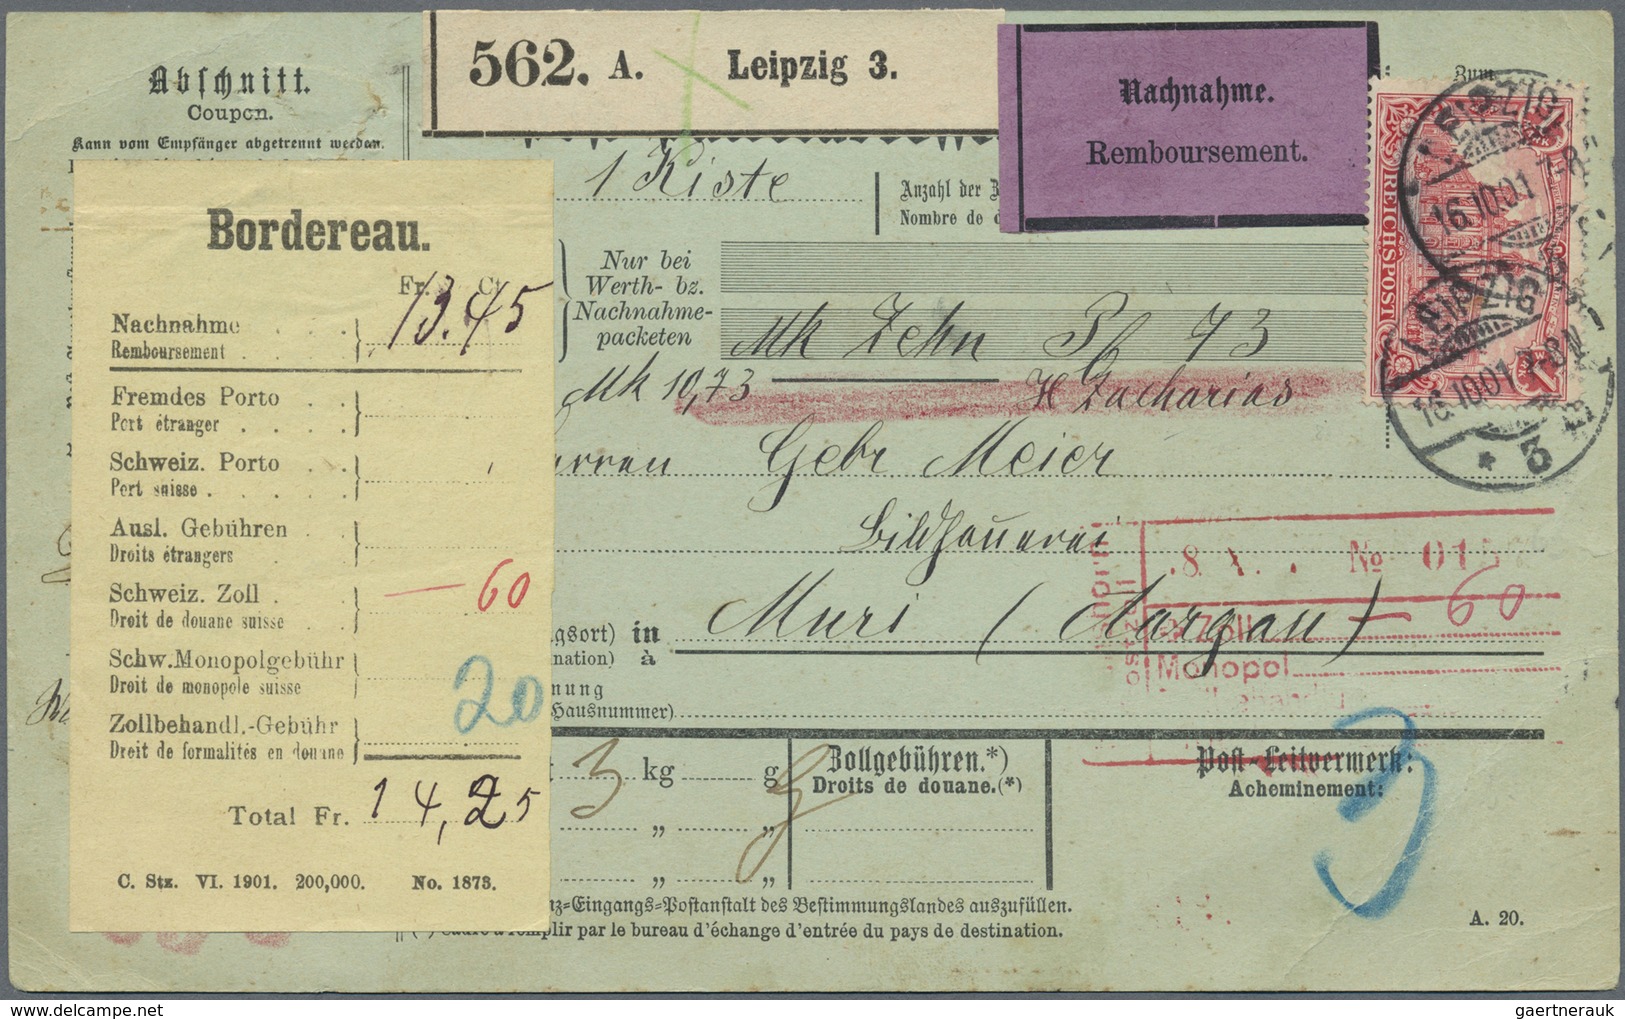 Abschnitt.
Coupon.
Kann vom Empfänger abgetrennt werden.
562. A. Leipzig 3.
Nachnahme.
Remboursement.
1 Kiste
Anzahl der
Nombre de d
LEIPZIG
16.10.01 7-8N
REICHSPOST
LEIPZIG
16.10.01 7-8N
* 3
Bordereau.
Fr. Ct
Nachnahme
Remboursement
13.45
Fremdes Porto
Port étranger
Schweiz. Porto
Port suisse
Ausl. Gebühren
Droits étrangers
Schweiz. Zoll
Droit de douane suisse
— 60
Schw. Monopolgebühr
Droit de monopole suisse
Zollbehandl.-Gebühr
Droit de formalités en douane
20
Total Fr. 14,25
C. Stz. VI. 1901. 200,000. No. 1873.
Nur bei
Werth- bz.
Nachnahme-
packeten
Mk Zehn Pf 73
Mk 10,73 H Zacharias
rren Gebr Meier
Bildhauerei
gsort) in Muri (Aargau)
nation) à
nung
Hausnummer)
8. X. No 015
Zoll — 60
Monopol
3 kg g
" "
" "
Zollgebühren.*)
Droits de douane.(*)
Post-Leitvermerk:
Acheminement:
3
nz-Eingangs-Postanstalt des Bestimmungslandes auszufüllen.
(*) Cadre à remplir par le bureau d'échange d'entrée du pays de destination.
A. 20.
gaertnerauk | delcampe.net